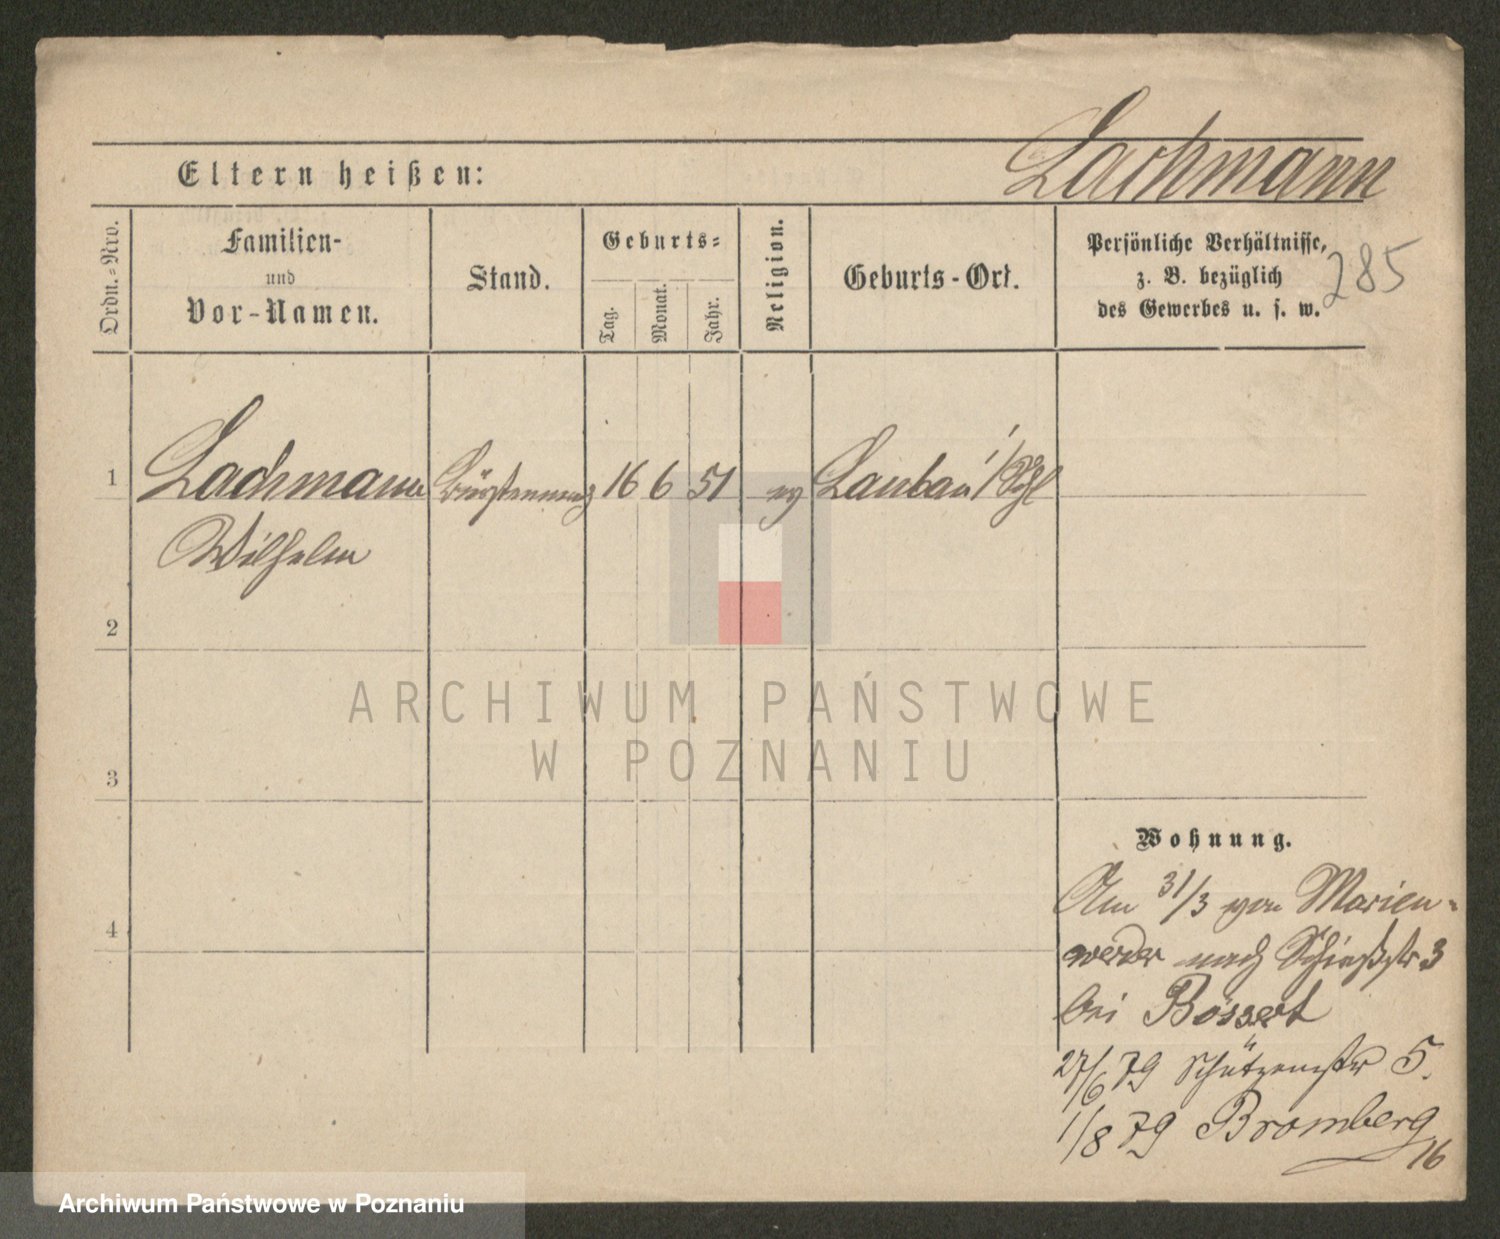 Lachmann
Eltern heißen:
Ordn.-Nro.
Familien-
und
Vor-Namen.
Stand.
Geburts-
Tag.
Monat.
Jahr.
Religion.
Geburts-Ort.
Persönliche Verhältnisse,
z. B. bezüglich
des Gewerbes u. s. w.
285
1 Lachmann 16 6 51 ev Lauban /Schl
Wilhelm
2
3
4
ARCHIWUM PAŃSTWOWE
W POZNANIU
Wohnung.
Am 31/3 von Marien-
werder nach Schießstr 3
bei Bossert
27/6 79 Schützenstr 5.
1/8 79 Bromberg
16
Archiwum Państwowe w Poznaniu